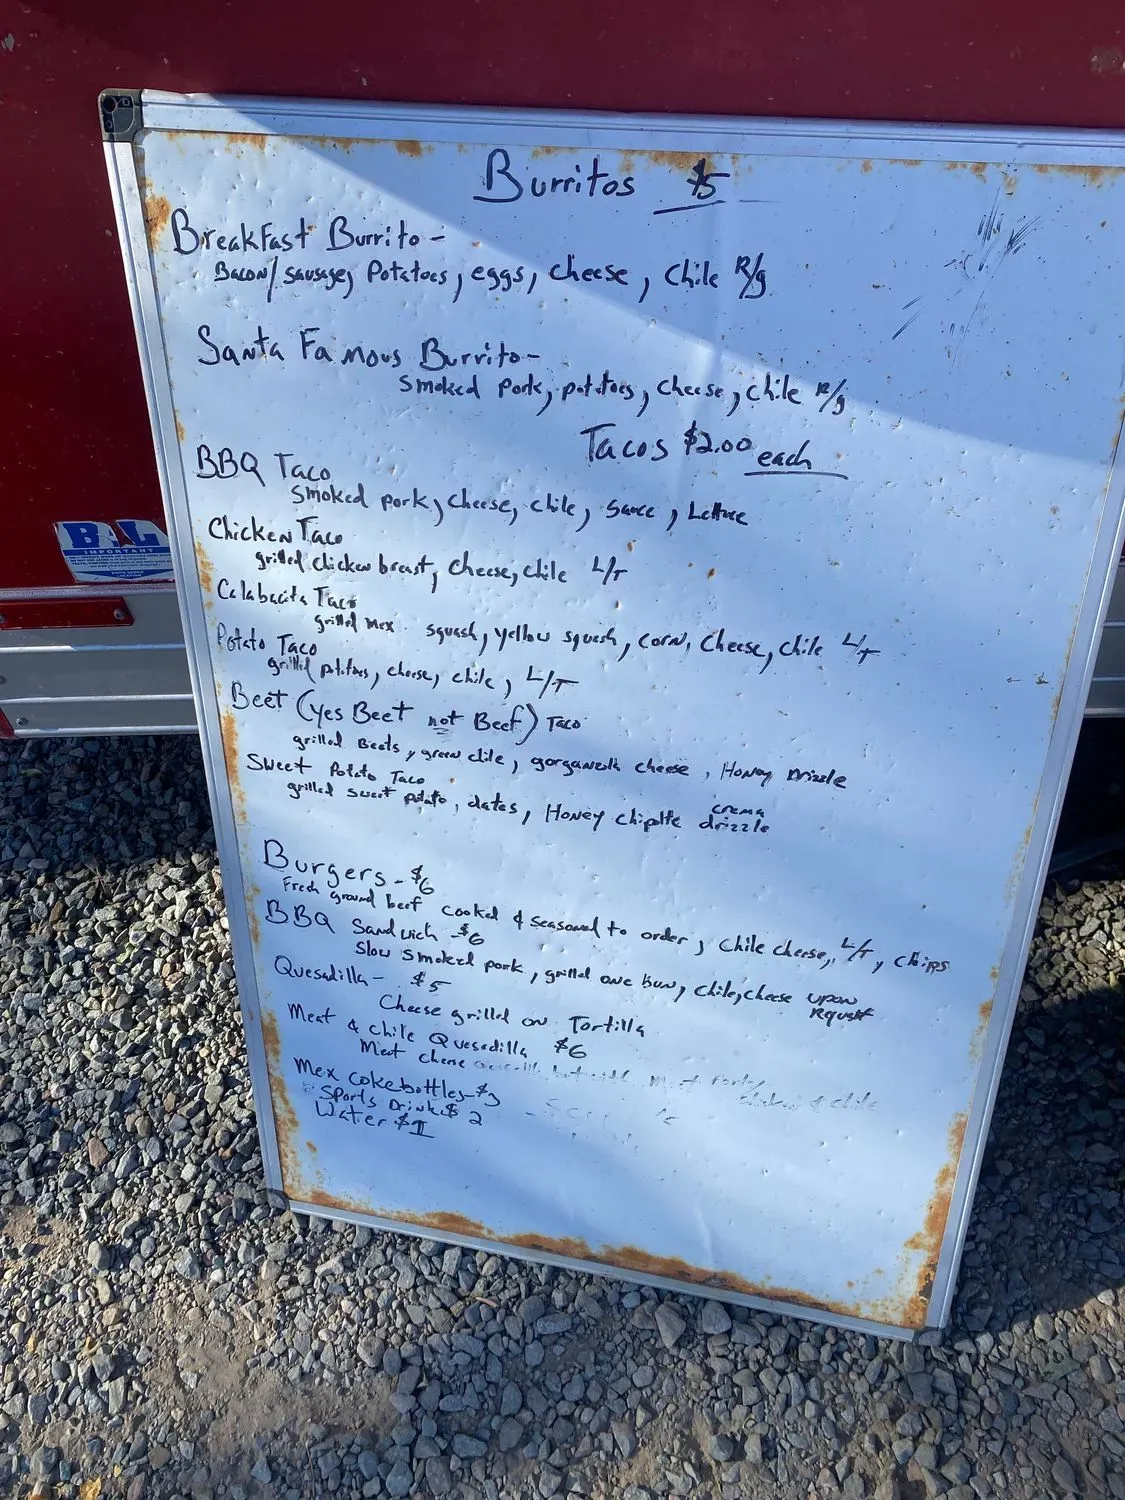 Burritos $5
Breakfast Burrito -
Bacon/sausage, Potatoes, eggs, cheese, chile R/g
Santa Famous Burrito -
smoked pork, potatoes, cheese, chile R/g
Tacos $2.00 each
BBQ Taco
smoked pork, cheese, chile, sauce, Lettuce
Chicken Taco
grilled chicken breast, cheese, chile L/T
Calabacita Taco
grilled mex squash, yellow squash, corn, cheese, chile L/T
Potato Taco
grilled potatoes, cheese, chile, L/T
Beet (yes Beet not Beef) Taco
grilled Beets, green chile, cheese, Honey Drizzle
Sweet Potato Taco
grilled sweet potato, dates, Honey Chipotle crema drizzle
Burgers - $6
Fresh ground beef cooked & seasoned to order, chile cheese, L/T, chips
BBQ Sandwich - $6
Slow smoked pork, grilled one Bun, chile, cheese upon
Rquest
Quesadilla - $5
Cheese grilled on Tortilla
Meat & chile Quesadilla $6
Meat cheese but with
chicken & chile
Mex coke bottles - $3
Sports Drink $2
Water $1
B&L
IMPORTANT